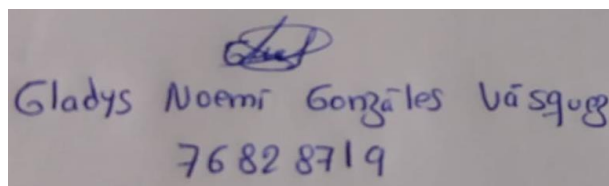 Gladys Noemí Gonzáles Vásquez
76828719